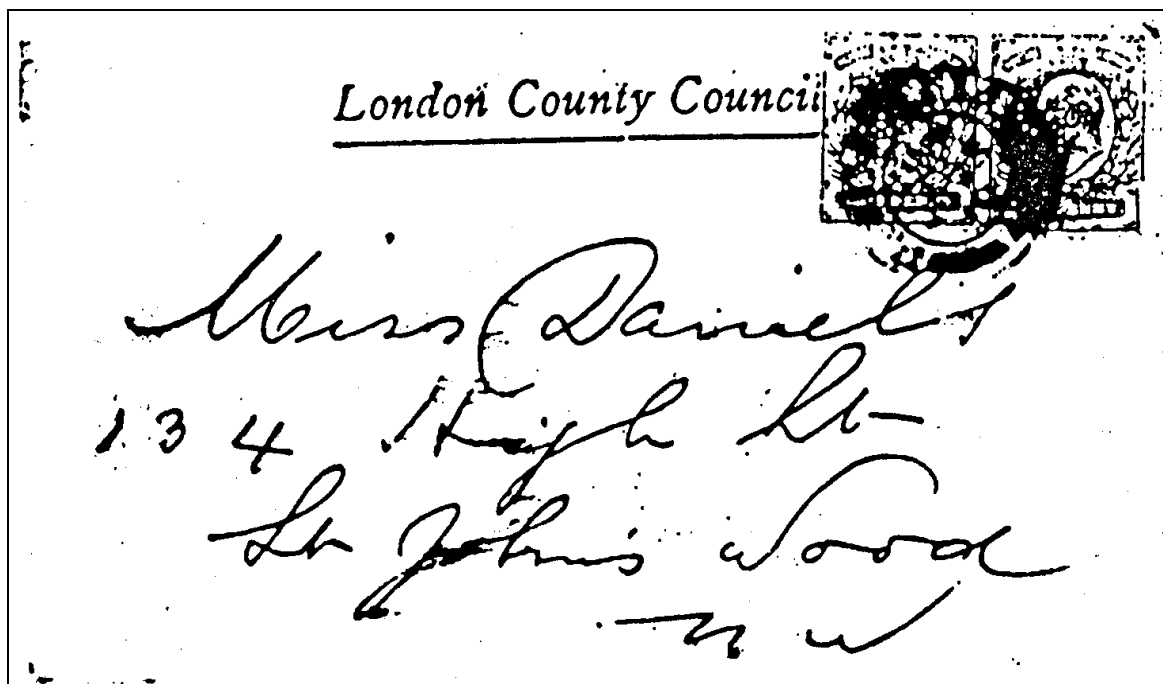 London County Council
Miss Daniels
134 High St
St John's Wood
N W